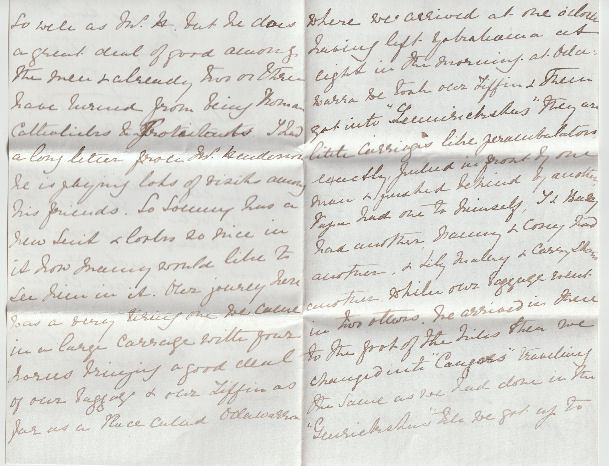 So well as Mr. H. but he does
a great deal of good among
the men & already two or three
have turned from being Roman
Catholicks to Protestants I had
a long letter from Mr. Henderson
he is paying lots of visits among
his friends. So Sonny has a
new Suit & looks so nice in
it how Nanny would like to
See him in it. Our journey here
was a very tiring one we came
in a large carriage with four
horses bringing a good deal
of our luggage & our Tiffin as
far as a Place called Odawarra
where we arrived at one oclock
having left Yokohama at
eight in the morning. at Oda-
warra we took our Tiffin & then
got into "Genirickshus" they are
little carriages like perambulators
exactly, pulled in front by one
man & pushed behind by another
Papa had one to himself, I &
had another Nanny & had
another, & Lily & Carey
another while our luggage went
in two others. We arrived in these
to the foot of the hills then we
changed into "Cangoes" travelling
the same as we had done in the
"Genirickshus" till we got up to